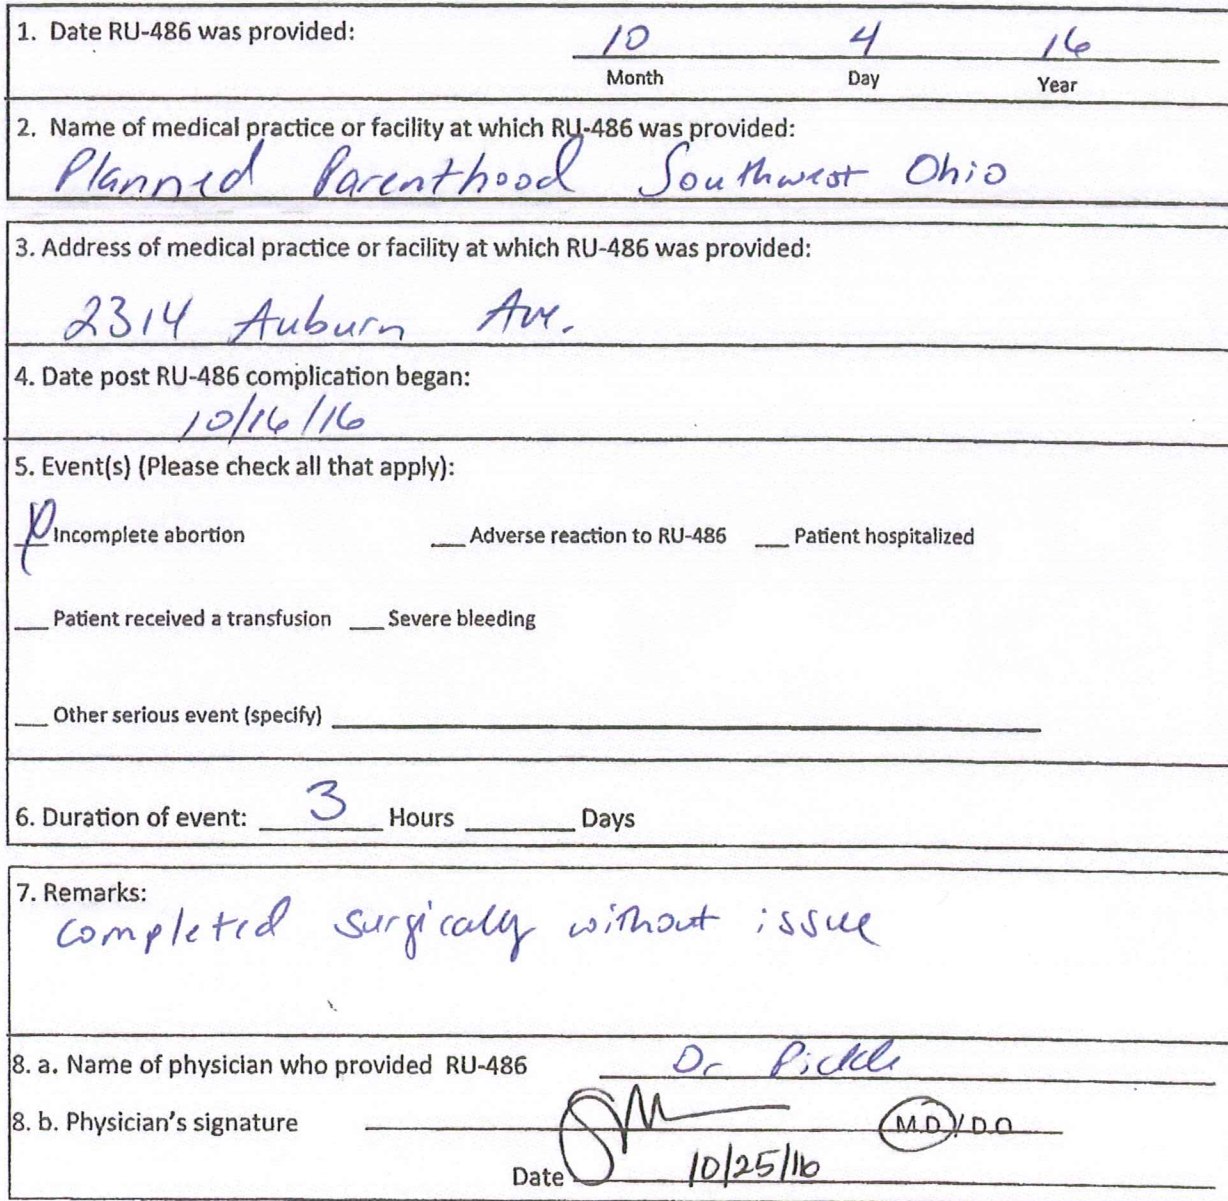 1. Date RU-486 was provided: 10 4 16
Month Day Year
2. Name of medical practice or facility at which RU-486 was provided:
Planned Parenthood Southwest Ohio
3. Address of medical practice or facility at which RU-486 was provided:
2314 Auburn Ave.
4. Date post RU-486 complication began:
10/16/16
5. Event(s) (Please check all that apply):
Incomplete abortion ___ Adverse reaction to RU-486 ___ Patient hospitalized
___ Patient received a transfusion ___ Severe bleeding
___ Other serious event (specify)
6. Duration of event: 3 Hours ___ Days
7. Remarks:
completed surgically without issue
8. a. Name of physician who provided RU-486 Dr Pickle
8. b. Physician's signature M.D./D.O
Date 10/25/16